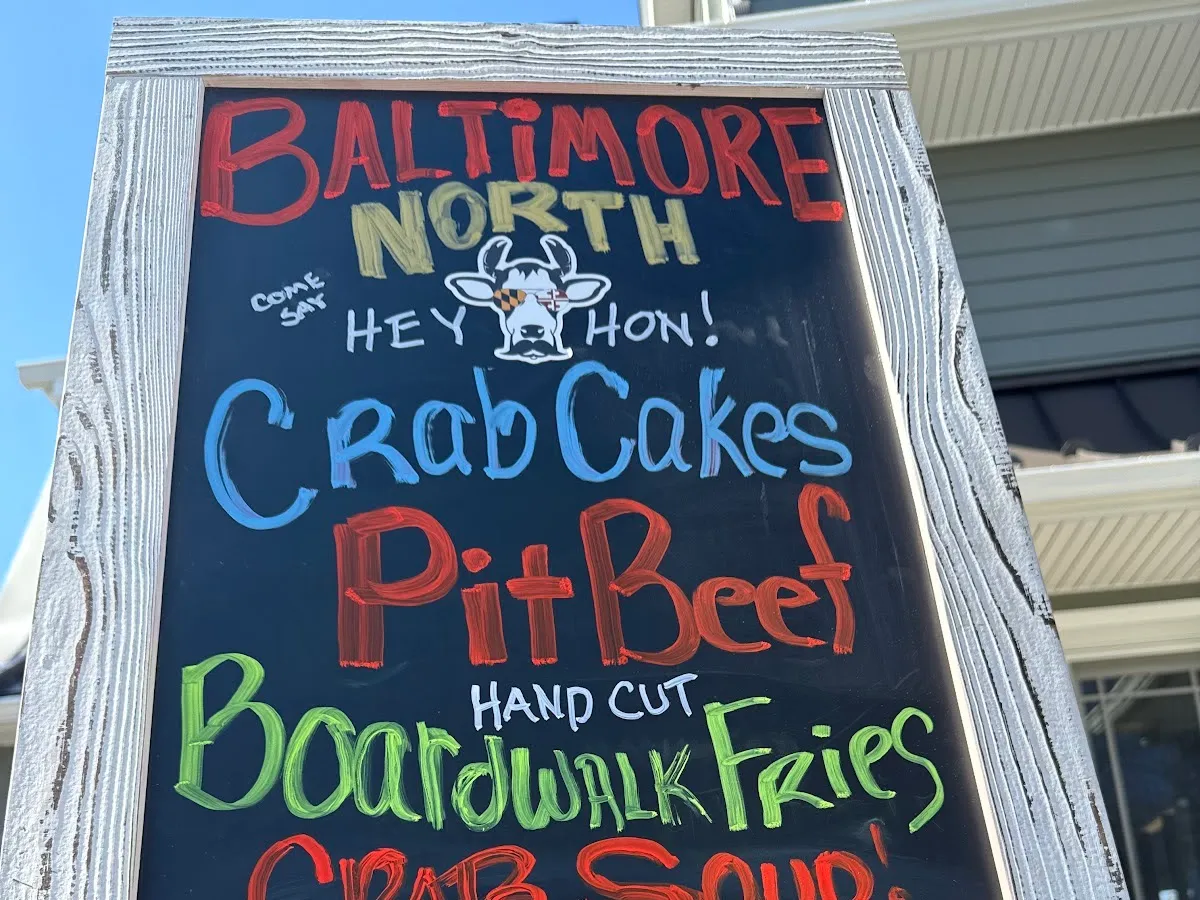 BALTiMORE
NORTH
COME
SAY
HEY HON!
Crab Cakes
Pit Beef
HAND CUT
BoardWALK FRies
CRAB SOUP!